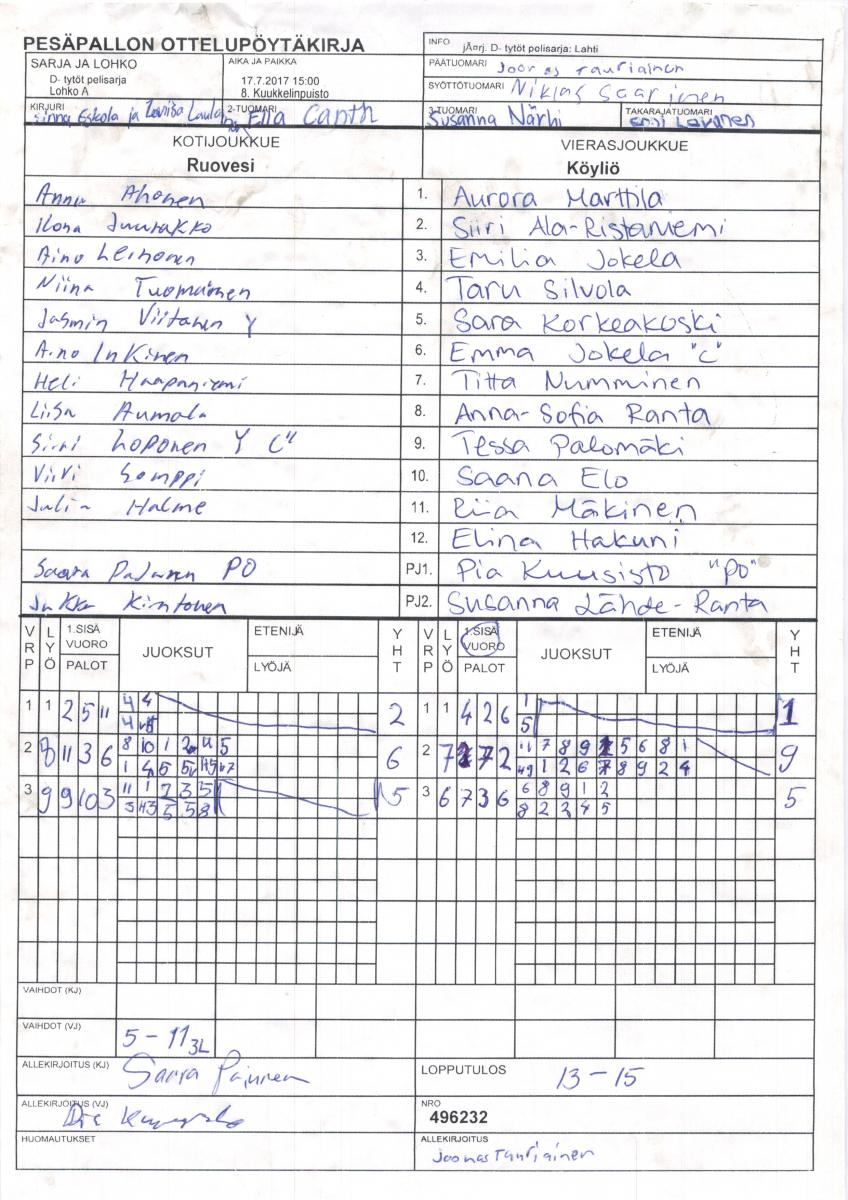 PESÄPALLON OTTELUPÖYTÄKIRJA
INFO jÄorj. D- tytöt polisarja: Lahti
SARJA JA LOHKO
D- tytöt pelisarja
Lohko A
AIKA JA PAIKKA
17.7.2017 15:00
8. Kuukkelinpuisto
PÄÄTUOMARI Joonas Tauriainen
SYÖTTÖTUOMARI Niklas Saarinen
KIRJURI Eskola ja
2-TUOMARI Ella Canth
3-TUOMARI Susanna Närhi
TAKARAJATUOMARI
KOTIJOUKKUE
Ruovesi
VIERASJOUKKUE
Köyliö
Anna Ahonen 1. Aurora Marttila
Ilona Juurakko 2. Siiri Ala-Ristaniemi
Aino Leinonen 3. Emilia Jokela
Niina Tuomainen 4. Taru Silvola
Jasmin Viitanen Y 5. Sara Korkeakoski
Aino Inkinen 6. Emma Jokela "C"
Heli Haapaniemi 7. Titta Numminen
Liisa Aumala 8. Anna-Sofia Ranta
Siiri Loponen Y C" 9. Tessa Palomäki
Viivi Somppi 10. Saana Elo
Julia Halme 11. Riia Mäkinen
12. Elina Hakuni
Saara Pajunen PO PJ1. Pia Kuusisto "PO"
Jukka PJ2. Susanna Lähde-Ranta
VRP LYÖ 1.SISÄ VUORO PALOT JUOKSUT ETENIJÄ LYÖJÄ YHT VRP LYÖ 1.SISÄ VUORO PALOT JUOKSUT ETENIJÄ LYÖJÄ YHT
1 1 2 5 11 4 4 2 1 1 4 2 6 1 1
4 5
2 8 11 3 6 8 10 1 2 5 6 2 7 7 2 11 7 8 9 5 6 8 1 9
1 4 5 5 1 2 6 7 8 9 2 4
3 9 9 10 3 11 1 2 3 5 5 3 6 7 3 6 6 8 9 1 2 5
3 5 5 8 8 2 2 4 5
VAIHDOT (KJ)
VAIHDOT (VJ) 5 - 11 3L
ALLEKIRJOITUS (KJ) Saara Pajunen
LOPPUTULOS 13 - 15
ALLEKIRJOITUS (VJ)
NRO
496232
HUOMAUTUKSET
ALLEKIRJOITUS
Joonas Tauriainen